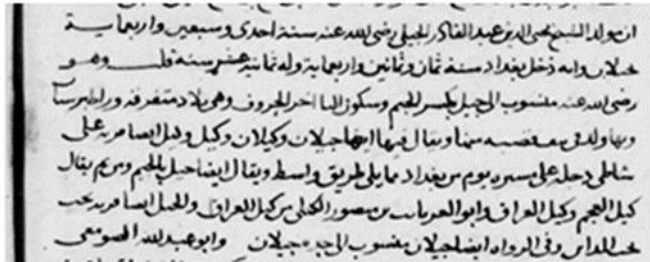 ان مولد الشيخ محيى الدين عبد القادر الجيلى رضى الله عنه سنة احدى وسبعين واربعماية
بجيلان وانه دخل بغداد سنة ثمان وثمانين واربعماية وله ثمانية عشر سنة قلت وهو
رضى الله عنه منسوب الى جيل بكسر الجيم وسكون اليا اخر الحروف وهى بلاد متفرقة ورا طبرستان
وبها ولد فى قصبة منها ويقال فيها ايضا جيلان وكيلان وكيل وجيل ايضا قرية على
شاطى دجلة على مسيرة يوم من بغداد مما يلى طريق واسط ويقال ايضا جيل بالجيم ومن ثم يقال
كيل العجم وكيل العراق وابو العز بن منصور الكيلى من كيل العراق والجيل ايضا قرية تحت
المداين وفى الرواة ايضا جيلان منسوب الى جده جيلان وابو عبد الله الصومعى